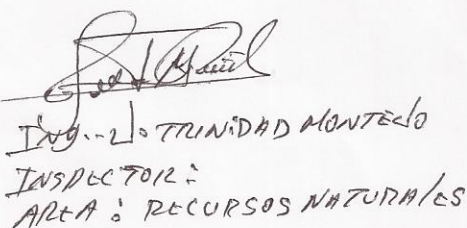 Ing.- J. TRINIDAD MONTEJO
INSPECTOR:
AREA: RECURSOS NATURALES